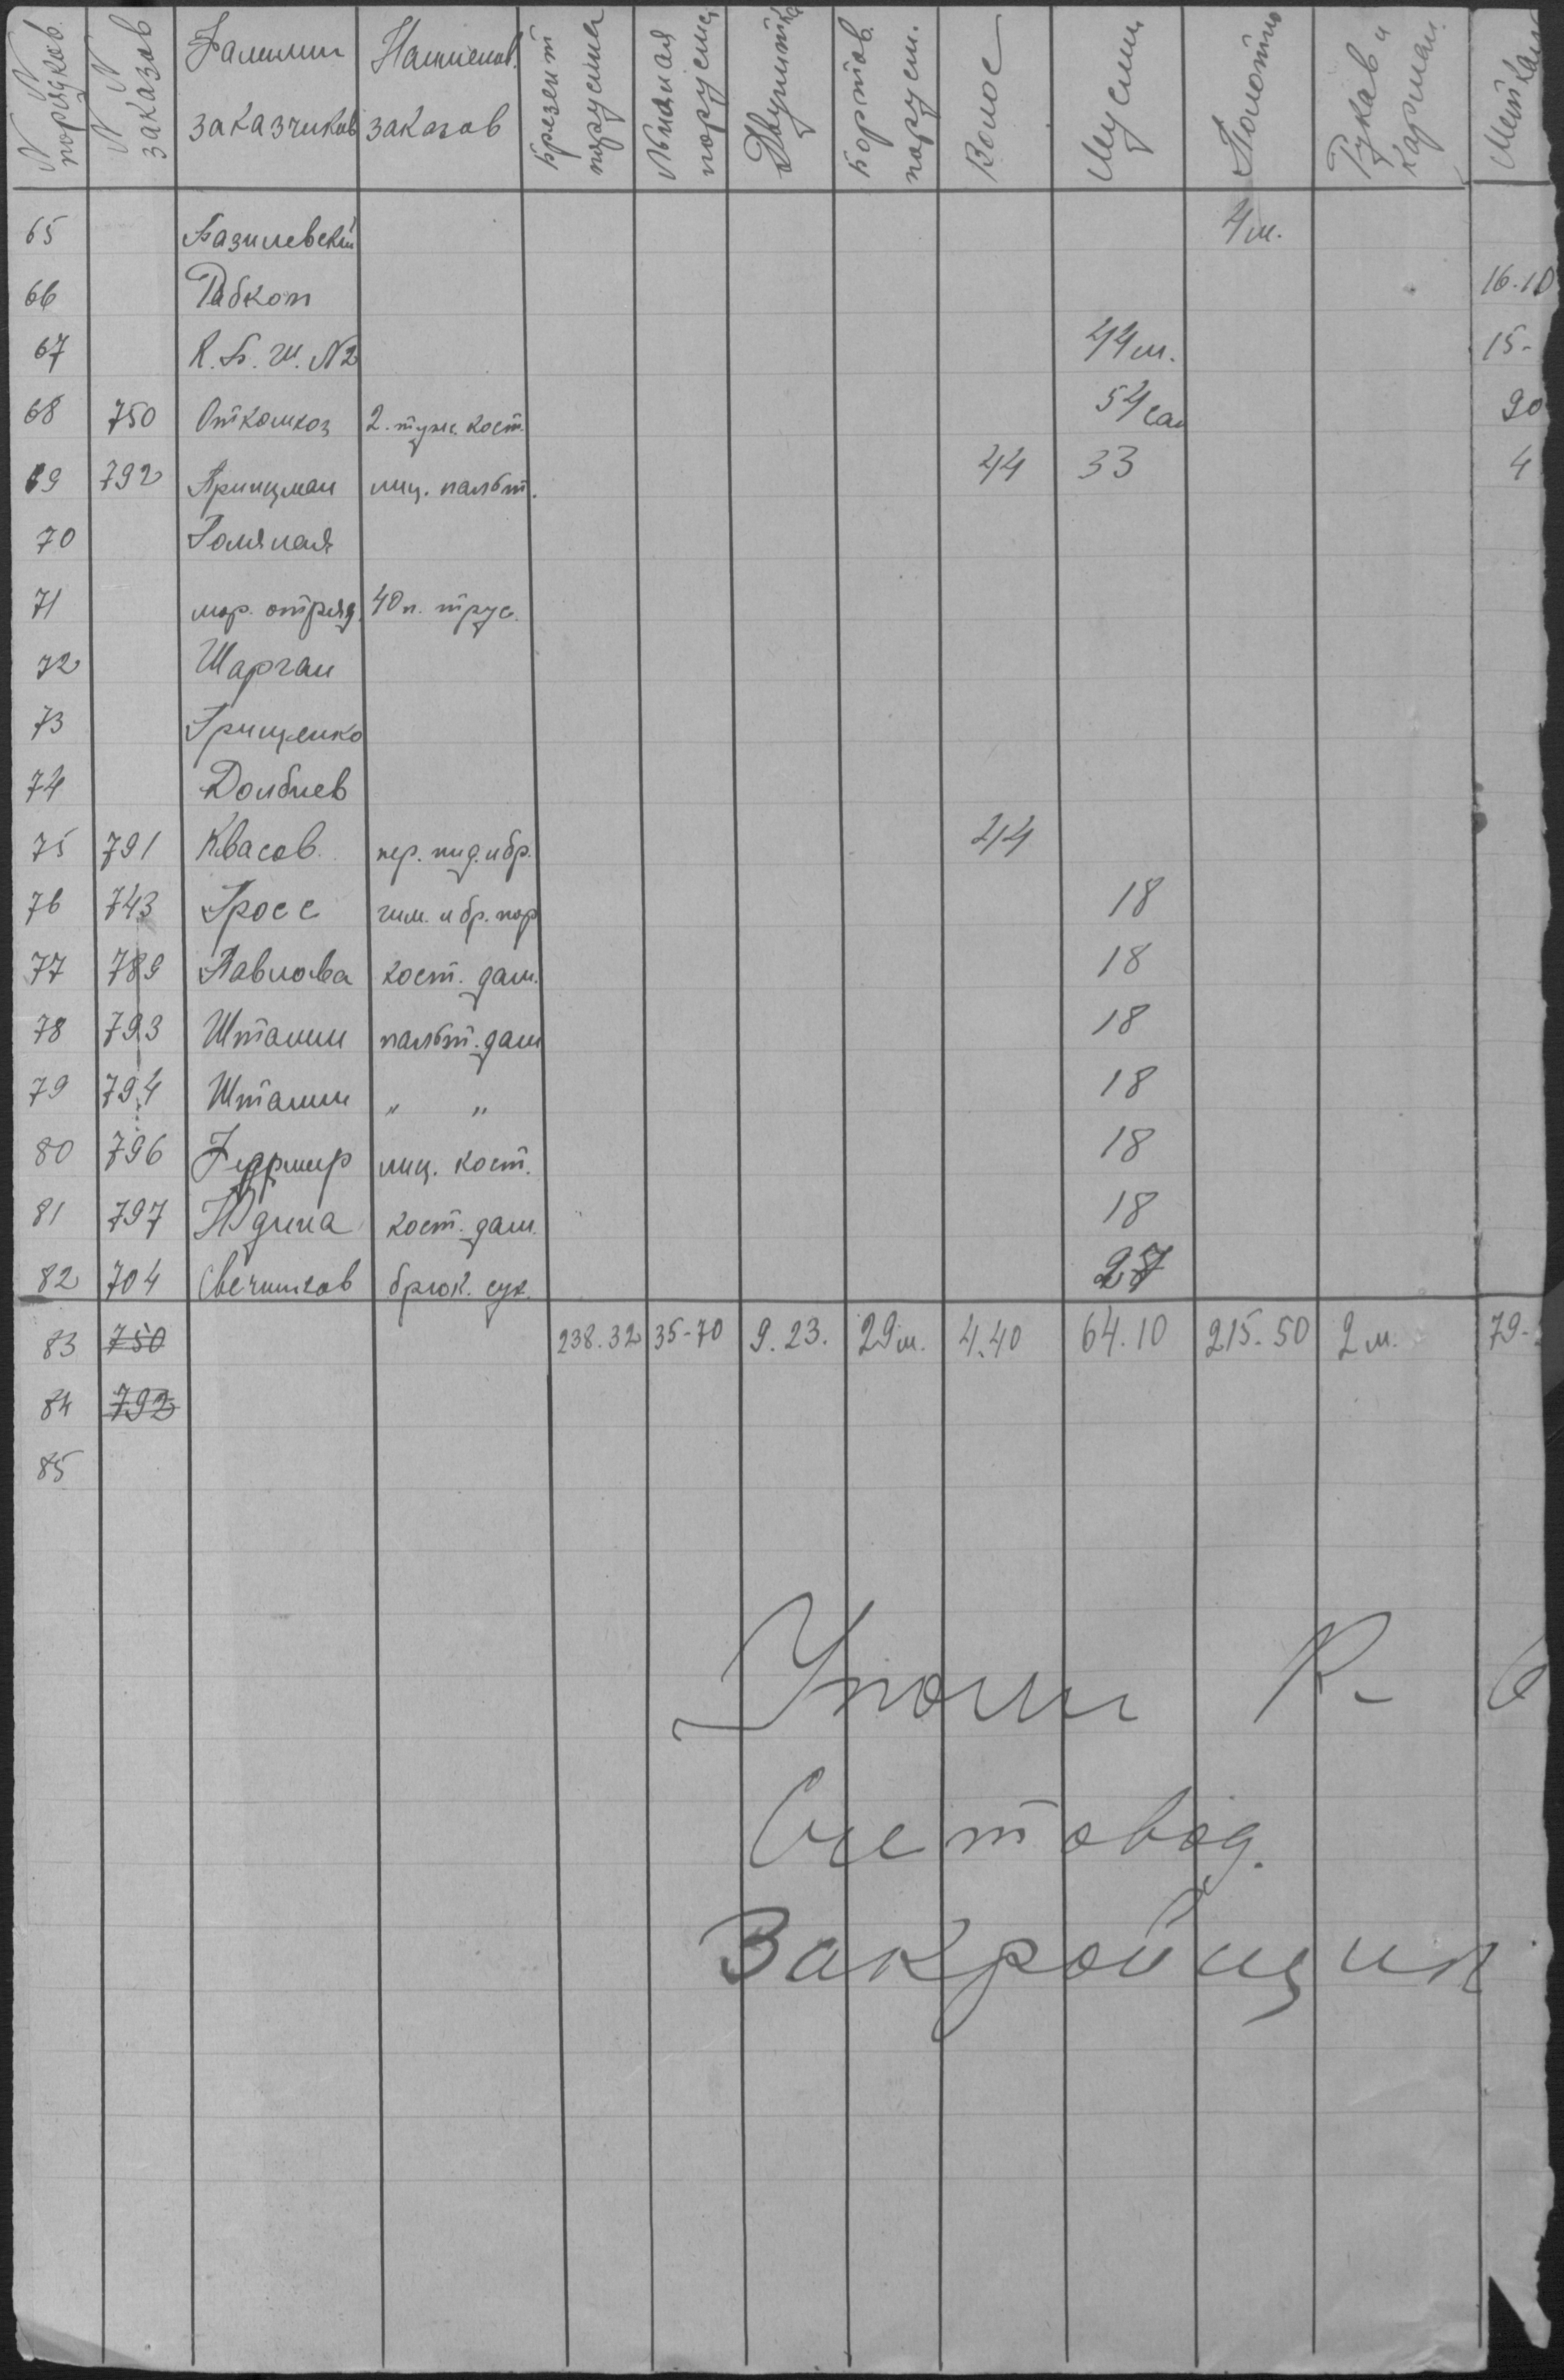 N N порядков. N N заказов Фамилии заказчиков Наименов. заказов Брезент парусина Льняная парусина Двунитка Бортов. парусин. Волос Муслин Полотно Рукав и карман. Миткаль
65 Базилевский 4 м.
66 Рабкоп 16.10
67 К. Б. Ш. N2 44 м. 15-
68 750 2. туж. кост. 54 сан 90
69 792 Принцман лиц. пальт. 44 33 4
70
71 мор. отряд. 40 п. трус.
72 Шарган
73 Грищенко
74 Долбнев
75 791 Квасов. пер. пид. и бр. 44
76 743 Гросс гим. и бр. пор 18
77 789 Павлова кост. дам. 18
78 793 Штамм пальт. дам 18
79 794 Штамм " " 18
80 796 лиц. кост. 18
81 797 Юдина кост. дам. 18
82 704 Свечников брюк. сук. 27
83 750 238.32 35-70 9.23. 29 м. 4.40 64.10 215.50 2 м. 79-
84 792
85
Уполн Р.
Счетовод.
Закройщик